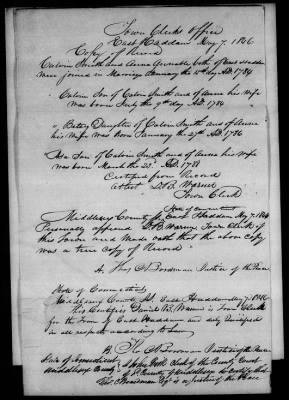 Town Clerks Office
East Haddam May 7, 1846
Copy of Record
Calvin Smith and Anne both of East Haddam
were joined in Marriage January the AD. 1784
Calvin Son of Calvin Smith and of Anne his Wife
was born July the 9th day AD 1784
" Betsey Daughter of Calvin Smith and of Anne
his Wife was born January the 27th AD. 1786
Son of Calvin Smith and of Anne his wife
was born March the 22d AD. 1788
Certified from Record
Attest D. B. Warner
Town Clerk
State of Connecticut
Middlesex County ss. East Haddam May 7, 1846
Personally appeared D. B. Warner Town Clerk of
this Town and made oath that the above copy
was a true copy of Record
A. Thos C Boardman Justice of the Peace
State of Connecticut
Middlesex County ss. East Haddam May 7, 1846
this Certifies Daniel B. Warner is Town Clerk
for the Town of East Haddam and duly Qualified
in all respects according to Law
B. Tho C Boardman Justice of the Peace
State of Connecticut
Middlesex County Clerk of the County Court
for the County of Middlesex do certify that
Thos C Boardman Esq is a Justice of the Peace